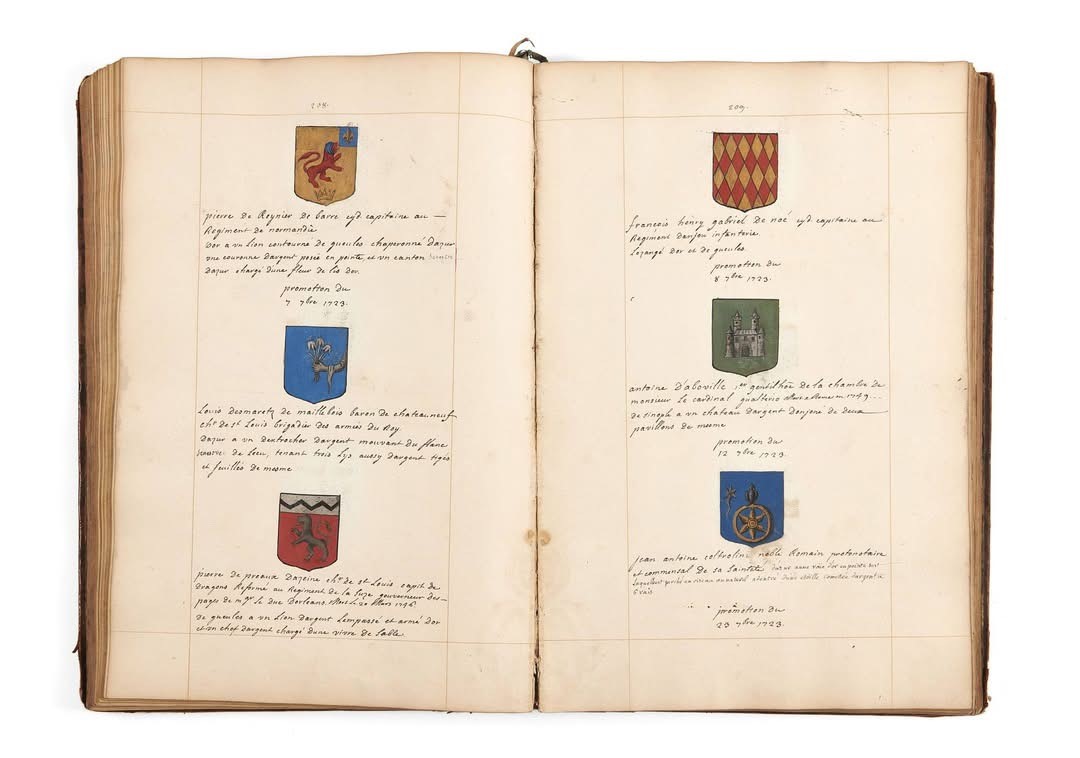 208.
pierre de Reynier de barre cyd capitaine au
Regiment de normandie
Dor a un Lion contourné de gueules chaperonné Dazur
une couronne dargent posée en pointe, et un canton
Dazur chargé dune fleur de lis dor.
promotion du
7 7bre 1723.
Louis desmaretz de maillebois baron de chateauneuf
chr. de st Louis brigadier des armées du Roy.
Dazur a un dextrocher dargent mouvant du flanc
de Lecu, tenant trois Lys aussy dargent tigés
et feuillés de mesme
pierre de preaux Dazeine chr. de st Louis capit. de
Dragons Reformé au Regiment de la suze gouverneur des
pages de mgr Le duc Dorleans. mort Le 20 Mars 1746
De gueules a un Lion dargent Lempassé et armé Dor
et un chef dargent chargé dune vivre de sable.
209.
françois henry gabriel De noé cyd capitaine au
Regiment danjou infanterie.
Lozangé dor et de gueules.
promotion du
8 7bre 1723.
antoine D'aboville 1er gentilhōe de la chambre de
monsieur Le cardinal gualterio en 1749
de sinople a un chateau dargent donjoné de deux
pavillons de mesme
promotion du
12 7bre 1723.
jean antoine noble Romain protonotaire
et commensal de sa sainteté dazur a une roüe dor
comettée dargent a
6 rais
promotion du
23 7bre 1723.